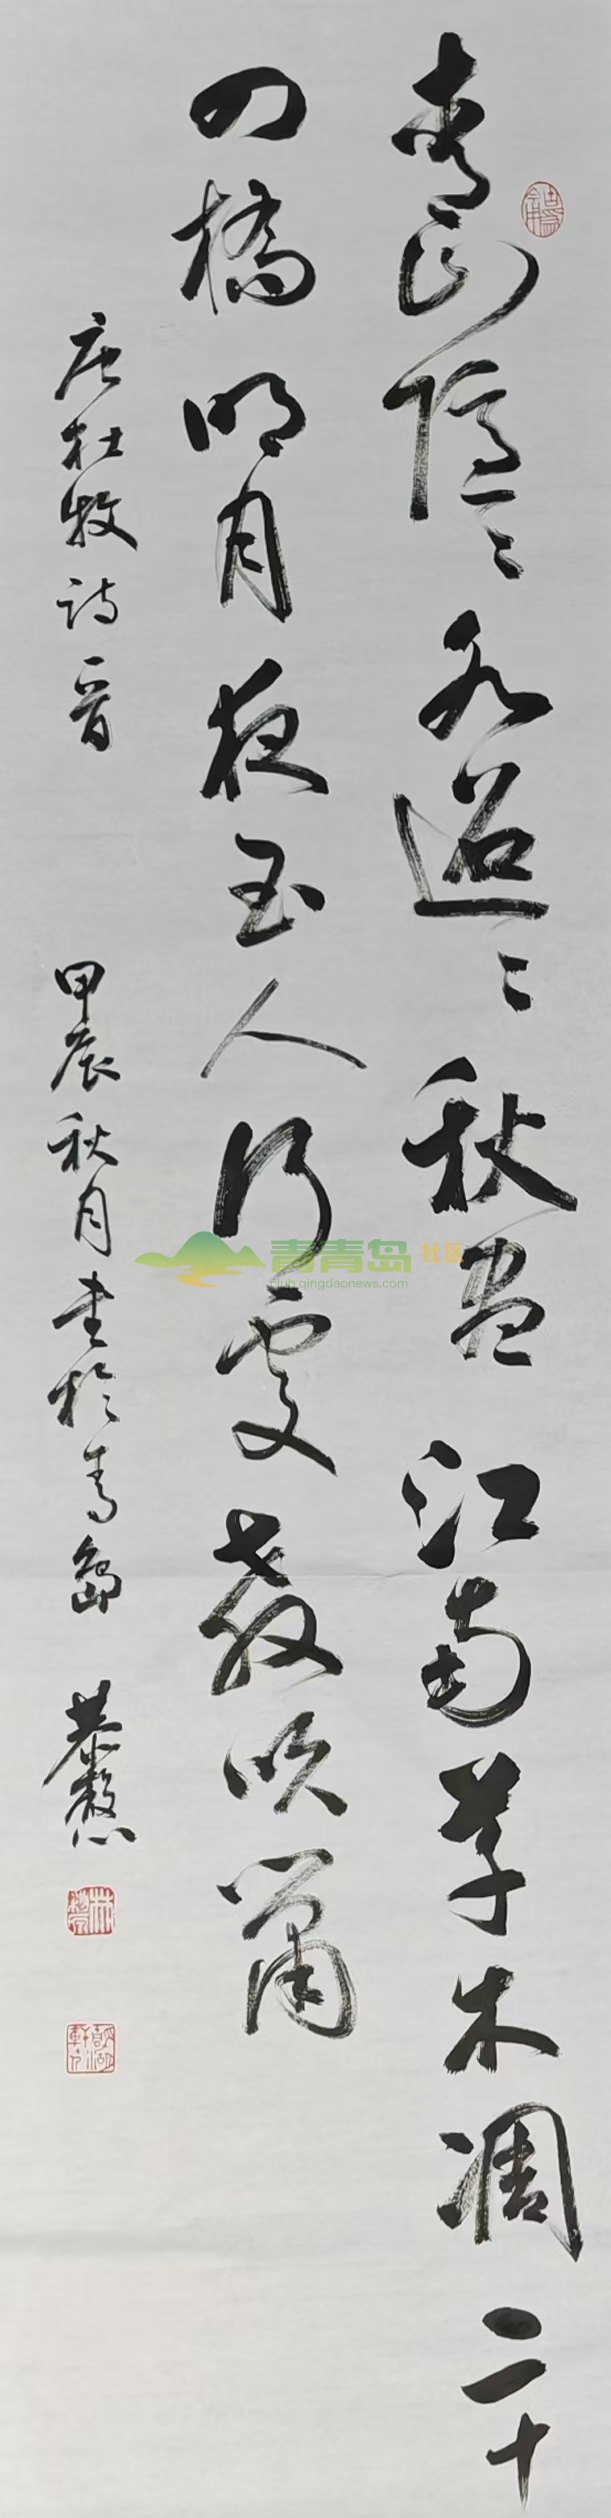 青山隐々水迢々秋尽江南草木凋二十
四桥明月夜玉人何处教吹箫
唐杜牧诗一首 甲辰秋月书于青岛
青青岛社区
club.qingdaonews.com